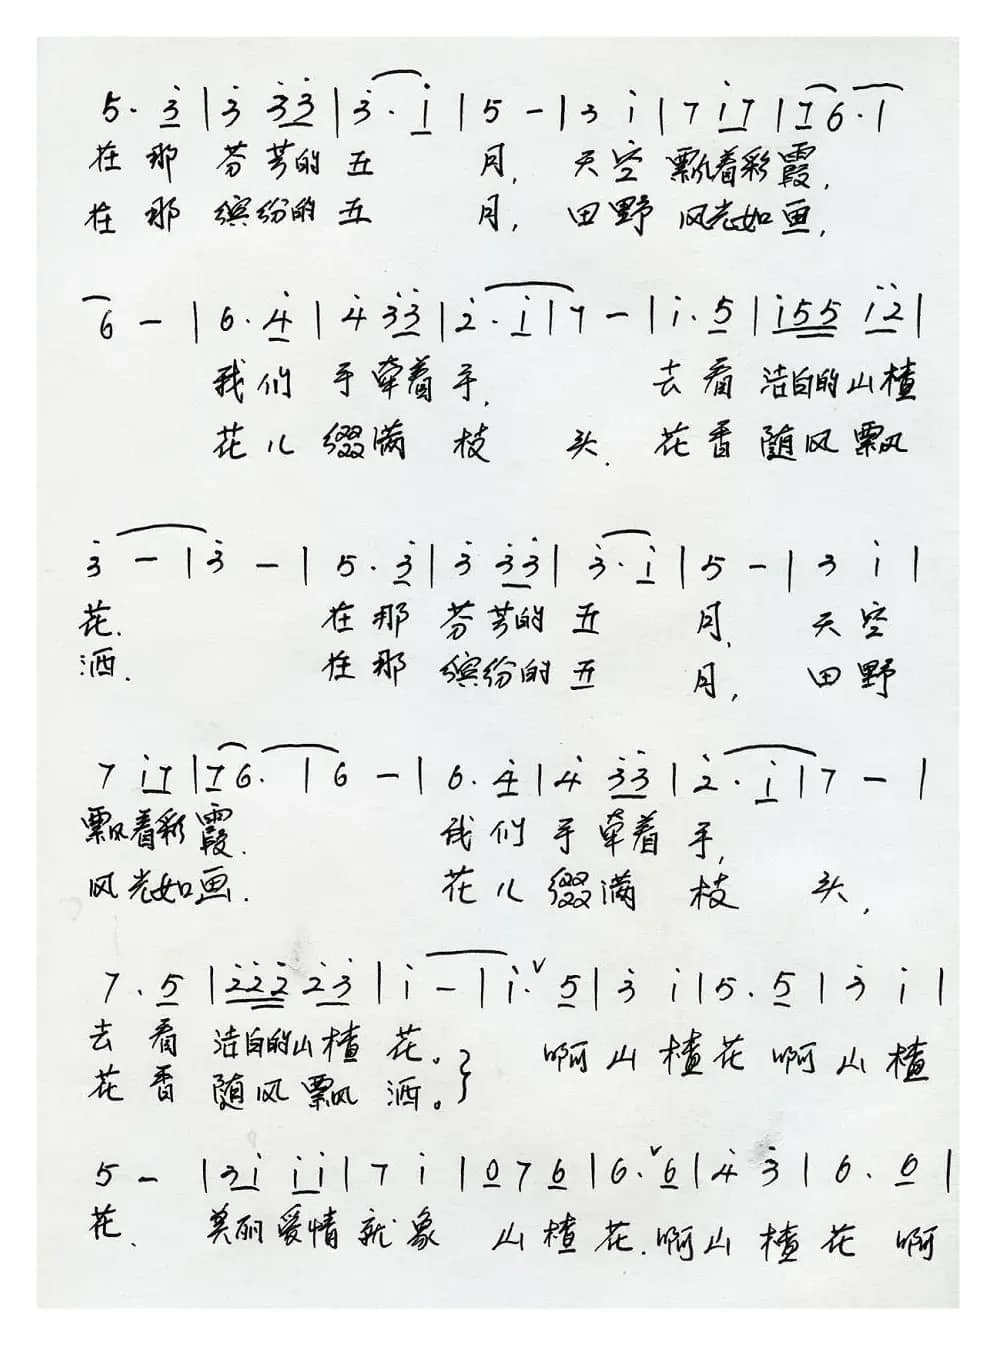 5. 3̇ | 3̇ 3̇3̇ | 3̇. i̇ | 5 - | 3 i̇ | 7 i̇7 | 76. |
在那芬芳的五月,天空飘着彩霞,
在那缤纷的五月,田野风光如画,
6 - | 6. 4̇ | 4̇ 3̇3̇ | 2̇. i̇ | 7 - | i̇. 5 | i̇55 i̇2̇ |
我们手牵着手,去看洁白的山楂
花儿缀满枝头.花香随风飘
3̇ - | 3̇ - | 5. 3̇ | 3̇ 3̇3̇ | 3̇. i̇ | 5 - | 3 i̇ |
花.在那芬芳的五月,天空
洒.在那缤纷的五月,田野
7 i̇7 | 76. | 6 - | 6. 4̇ | 4̇ 3̇3̇ | 2̇. i̇ | 7 - |
飘着彩霞.我们手牵着手,
风光如画.花儿缀满枝头,
7. 5 | 2̇2̇2̇ 2̇3̇ | i̇ - | i̇. ∨ 5 | 3̇ i̇ | 5. 5 | 3̇ i̇ |
去看洁白的山楂花。} 啊山楂花啊山楂
花香随风飘洒。}
5 - | 3i̇ i̇i̇ | 7 i̇ | 0 7 6 | 6. ∨ 6 | 4̇ 3̇ | 6. 6 |
花.美丽爱情就象山楂花.啊山楂花啊